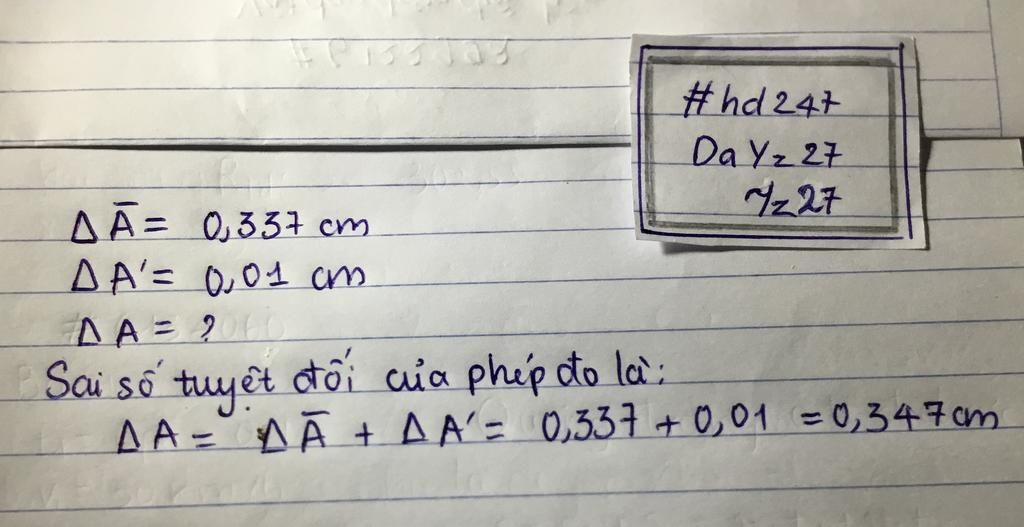 #hd247
DaYz27
Yz27
Δ A̅ = 0,337 cm
Δ A' = 0,01 cm
Δ A = ?
Sai số tuyệt đối của phép đo là:
Δ A = Δ A̅ + Δ A' = 0,337 + 0,01 = 0,347 cm